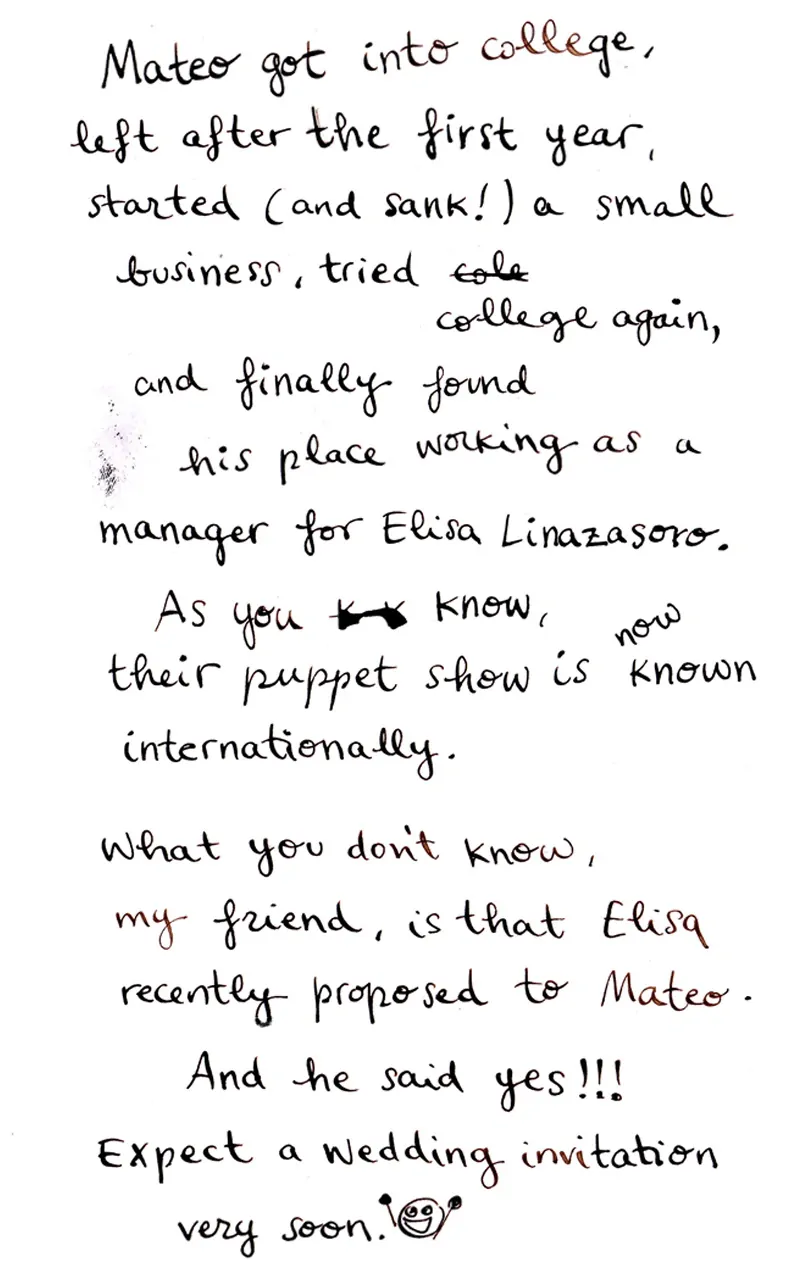 Mateo got into college,
left after the first year,
started (and sank!) a small
business, tried cole
college again,
and finally found
his place working as a
manager for Elisa Linazasoro.
As you know,
their puppet show is now known
internationally.
What you don't know,
my friend, is that Elisa
recently proposed to Mateo.
And he said yes!!!
Expect a wedding invitation
very soon.